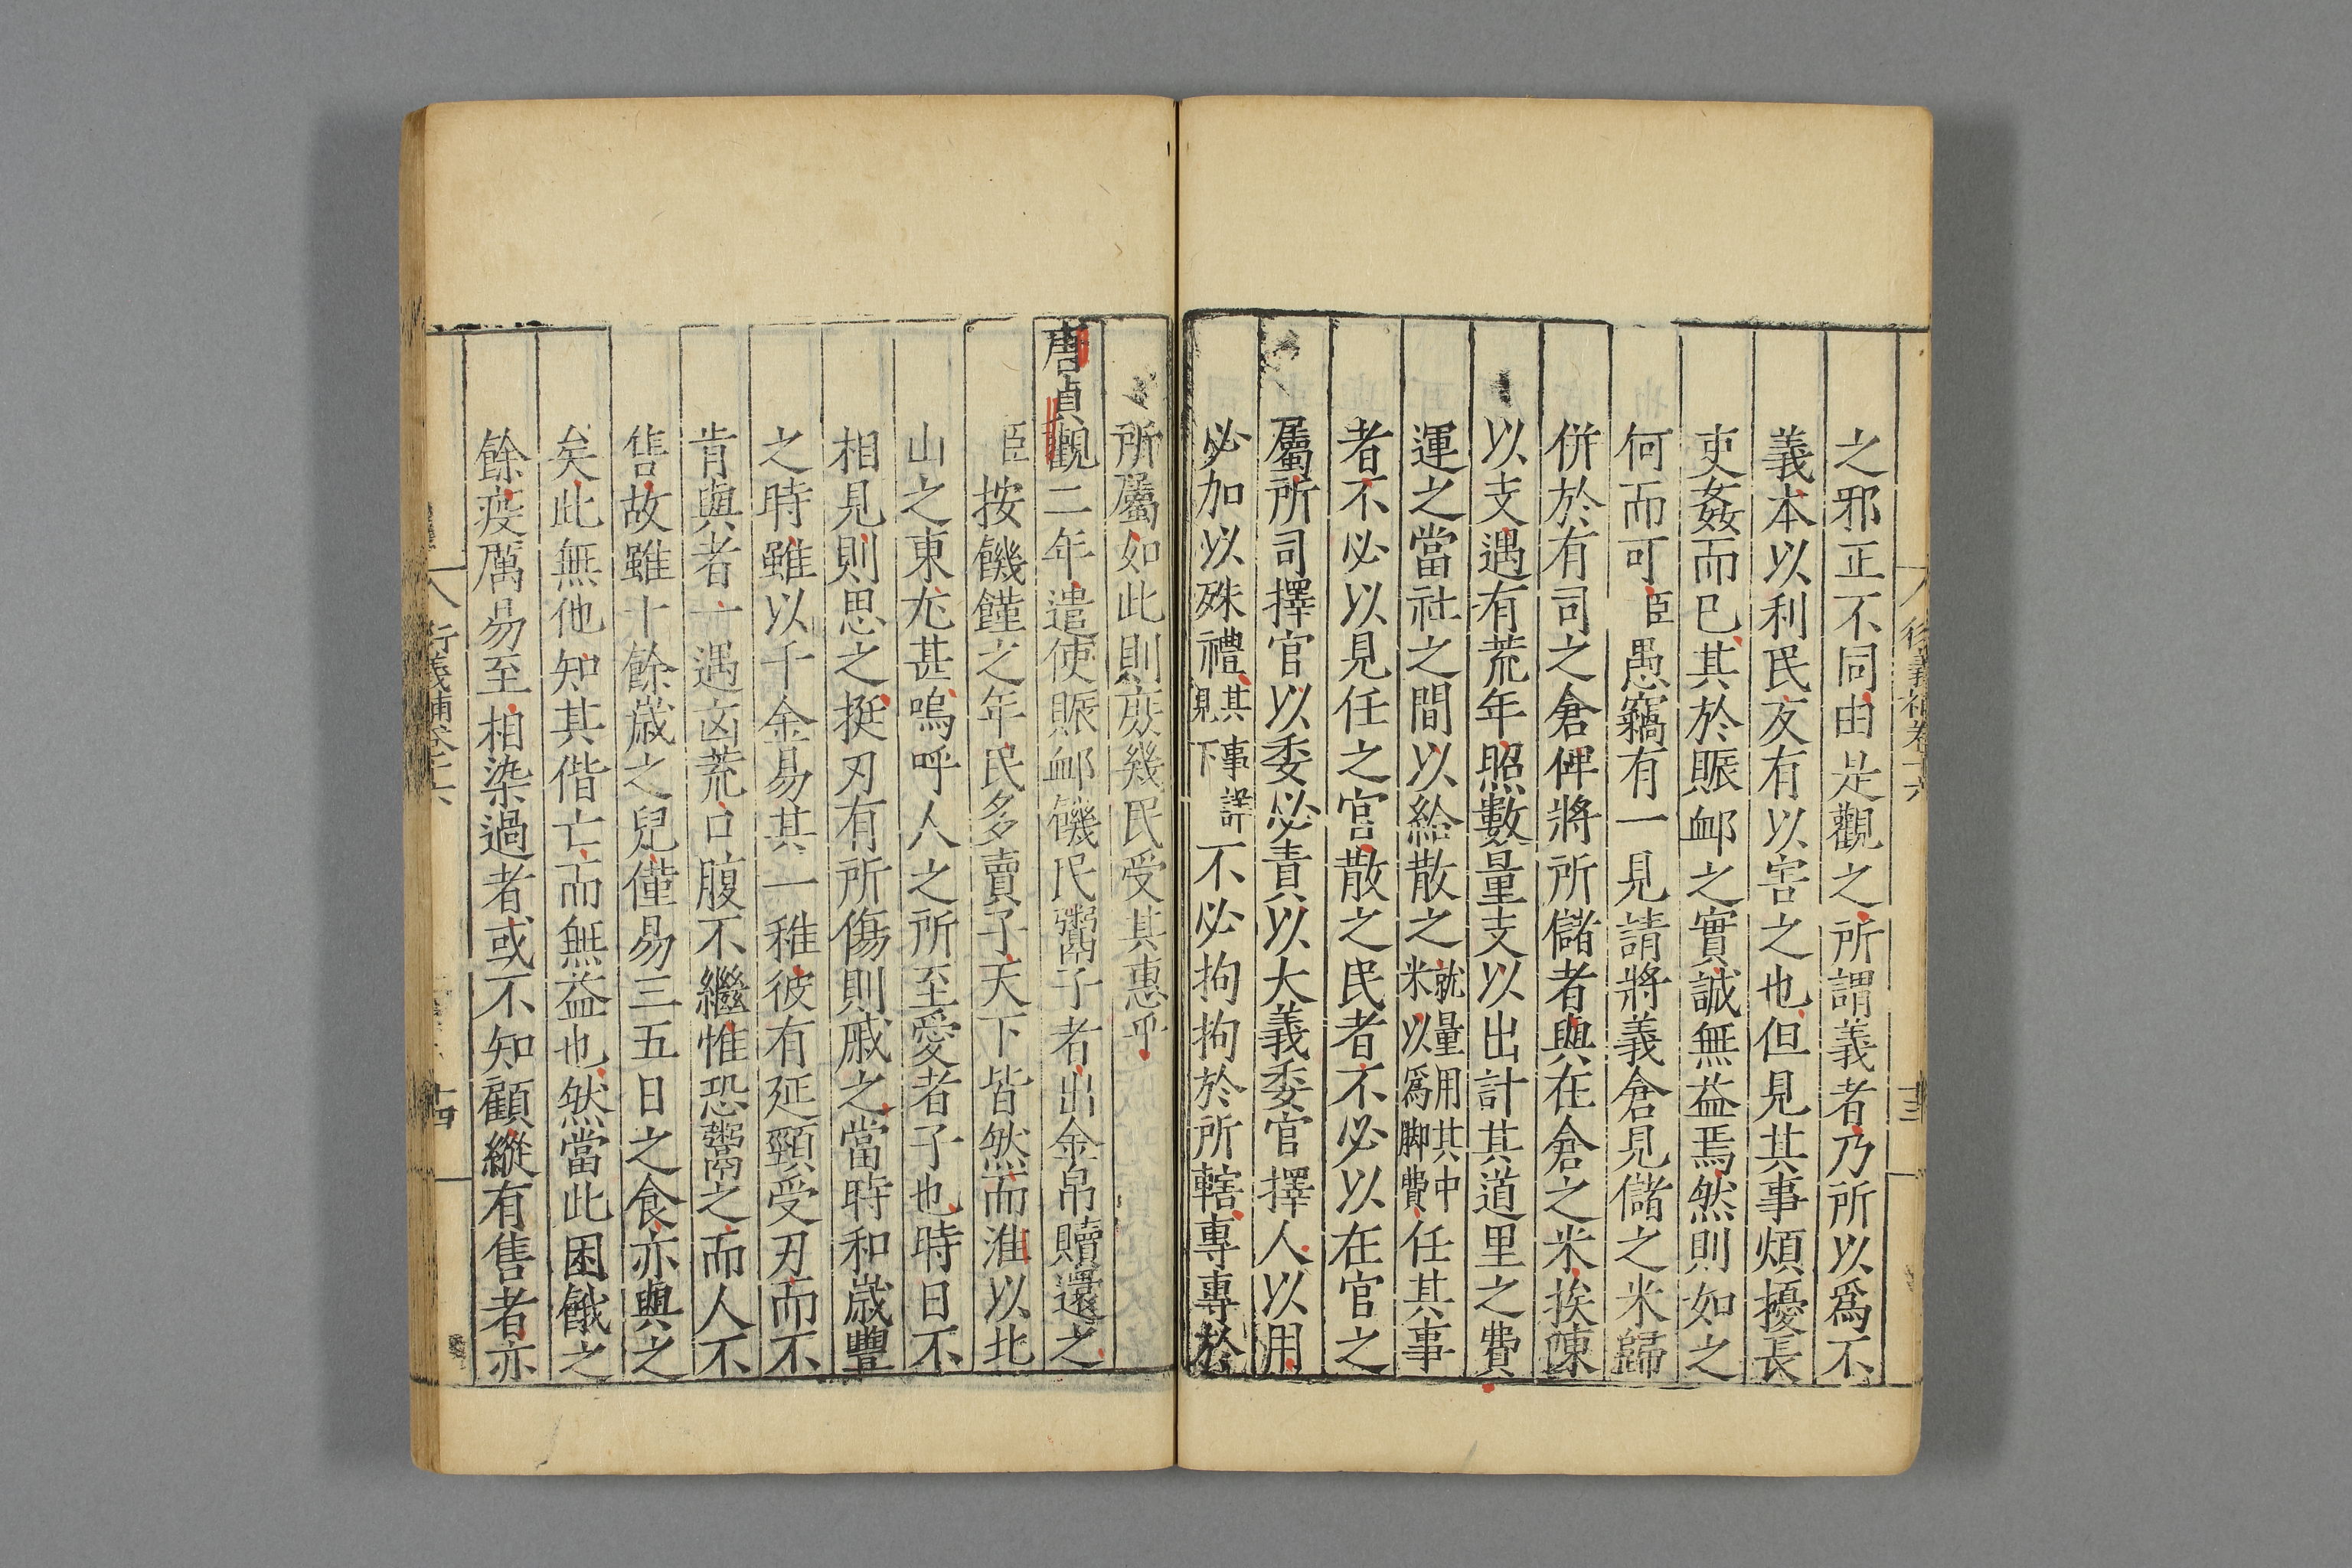 之邪正不同由是觀之所謂義者乃所以爲不
義本以利民反有以害之也但見其事煩擾長
吏姦而已其於賑䘏之實誠無益焉然則如之
何而可臣愚竊有一見請將義倉見儲之米歸
併於有司之倉俾將所儲者與在倉之米挨陳
以支遇有荒年照數量支以出計其道里之費
運之當社之間以給散之就量用其中米以爲脚費任其事
者不必以見任之官散之民者不必以在官之
屬所司擇官以委必責以大義委官擇人以用
必加以殊禮其事詳見下不必拘拘於所轄專專於
所屬如此則庻幾民受其惠乎
唐貞觀二年遣使賑䘏饑民鬻子者出金帛贖還之
臣按饑饉之年民多賣子天下皆然而淮以北
山之東尤甚嗚呼人之所至愛者子也時日不
相見則思之挺刃有所傷則戚之當時和歲豐
之時雖以千金易其一稚彼有延頸受刃而不
肯與者一遇凶荒口腹不繼惟恐鬻之而人不
售故雖十餘歲之兒僅易三五日之食亦與之
矣此無他知其偕亡而無益也然當此困餓之
餘疫厲易至相染過者或不知顧縱有售者亦
十四